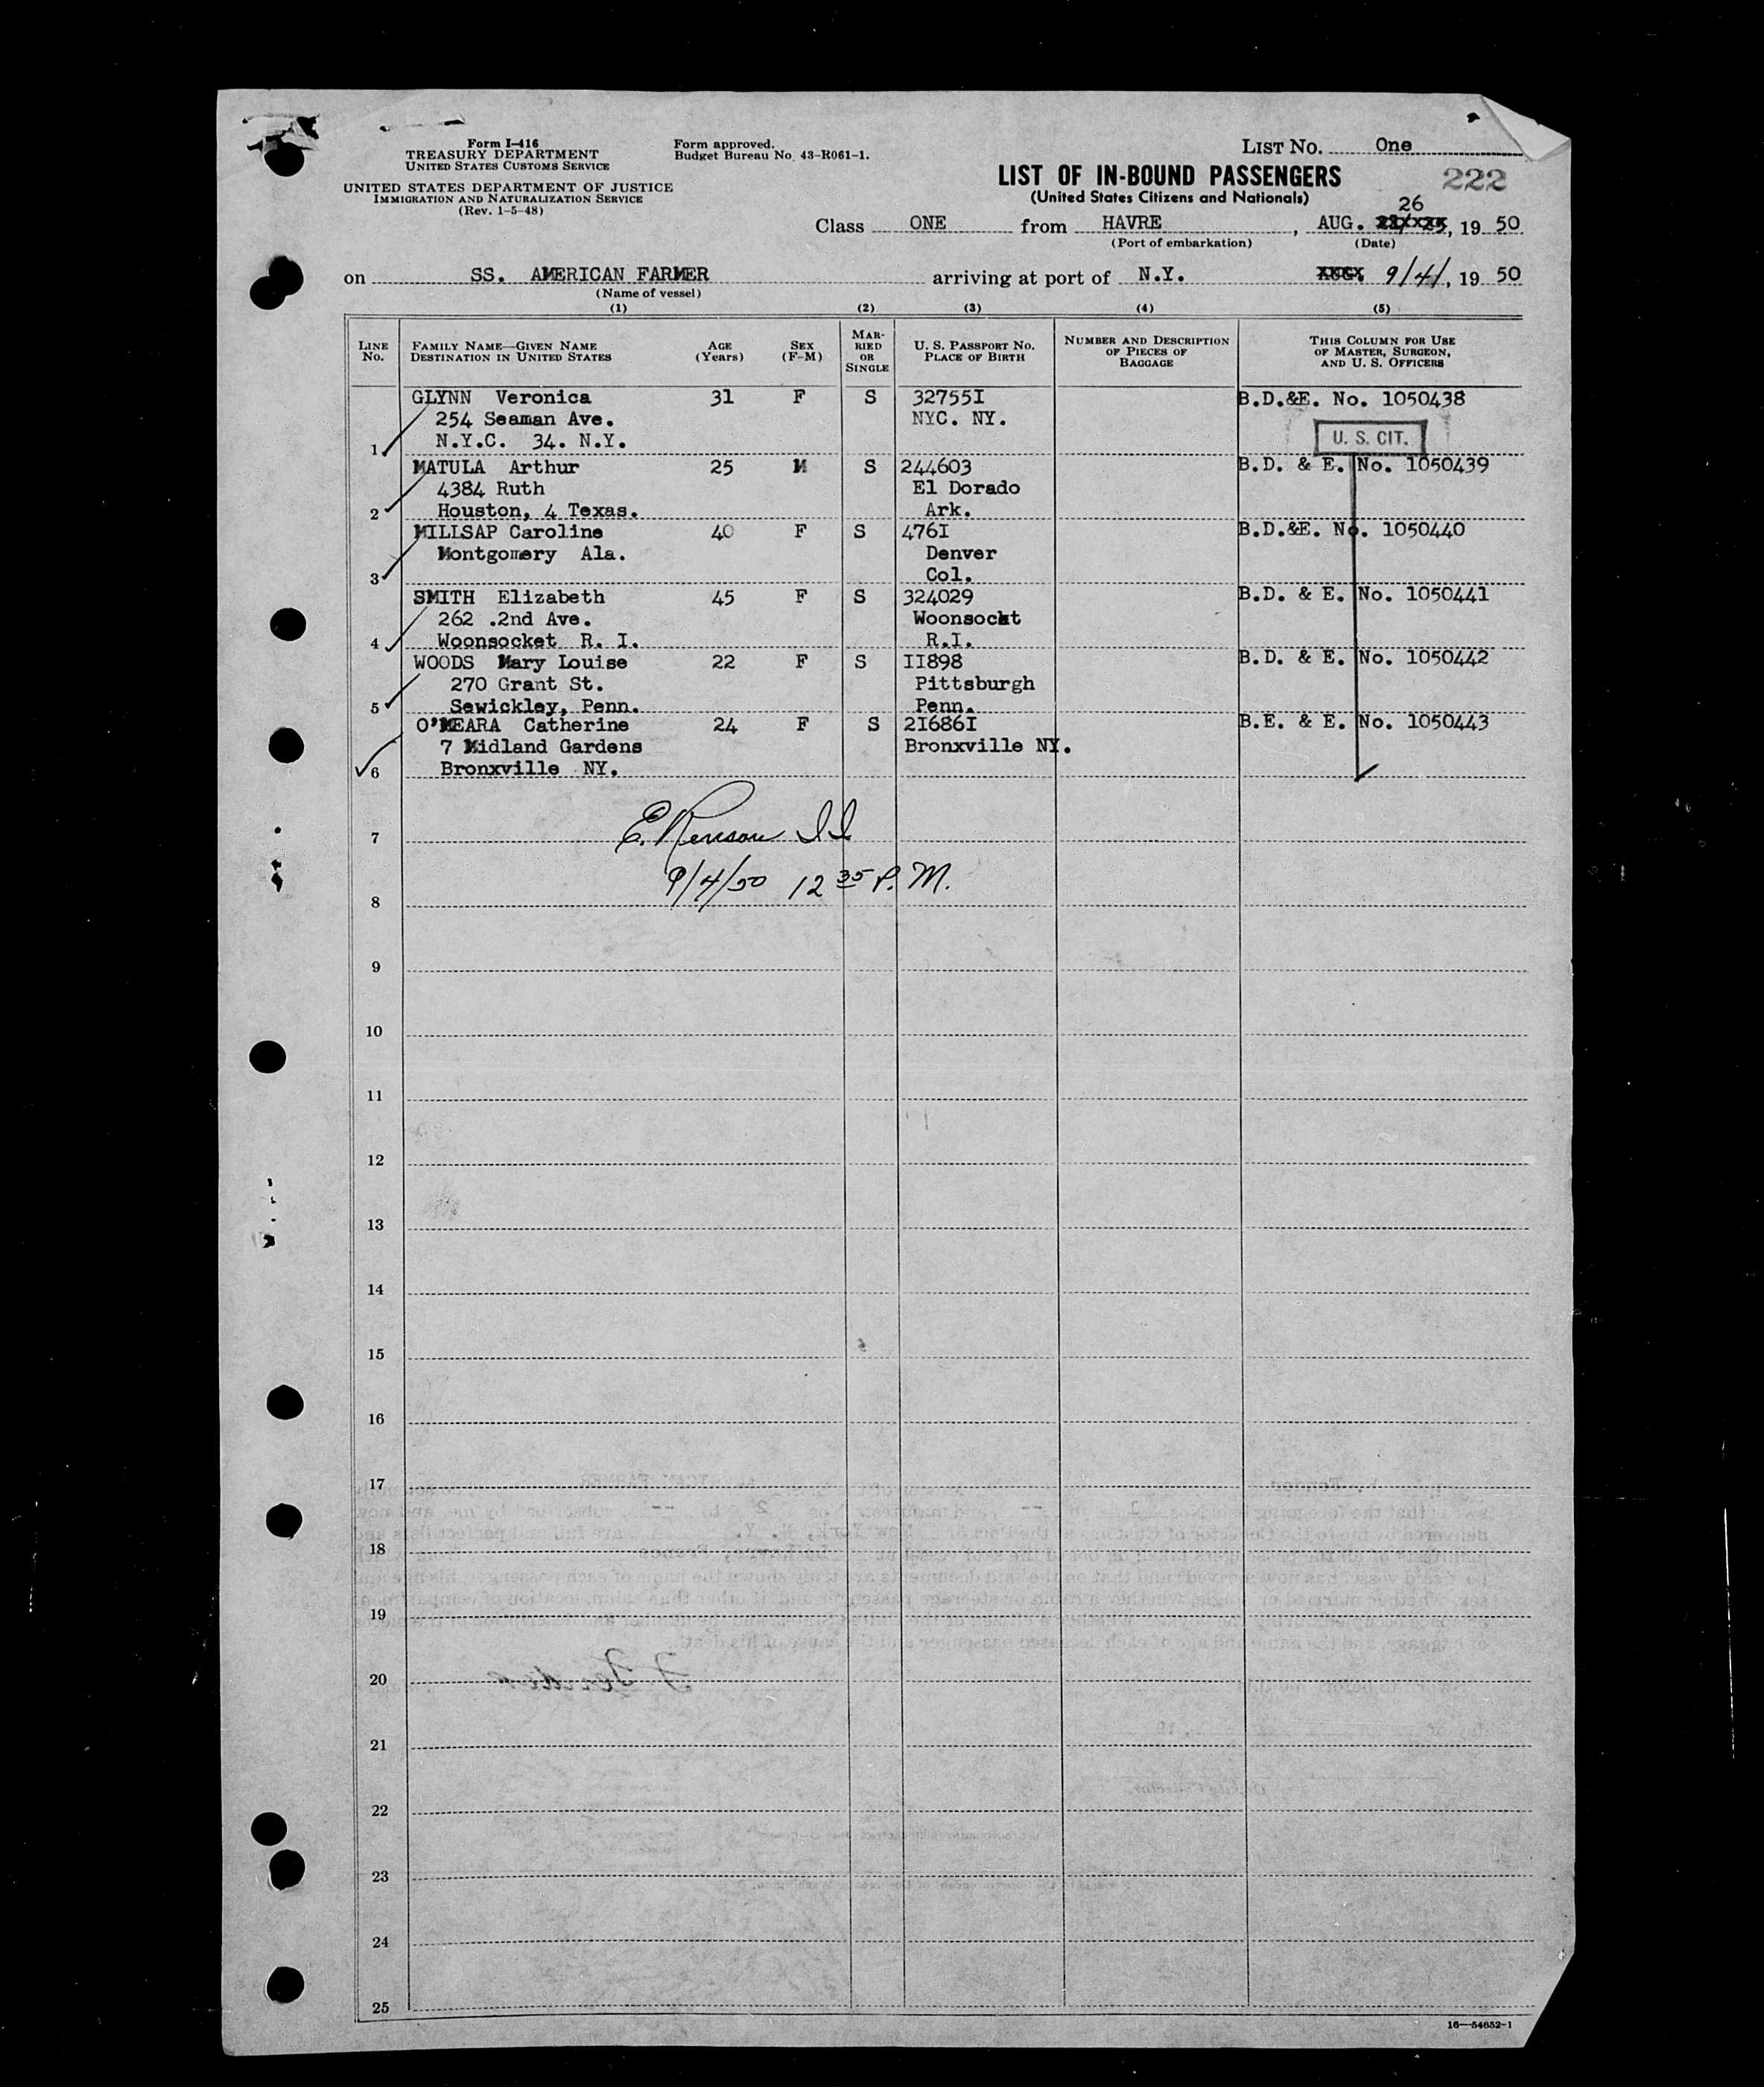 Form I-416
TREASURY DEPARTMENT
UNITED STATES CUSTOMS SERVICE
UNITED STATES DEPARTMENT OF JUSTICE
IMMIGRATION AND NATURALIZATION SERVICE
(Rev. 1-5-48)
Form approved.
Budget Bureau No. 43-R061-1.
LIST NO. One
LIST OF IN-BOUND PASSENGERS
222
(United States Citizens and Nationals)
26
Class ONE from HAVRE, AUG. , 19 50
(Port of embarkation) (Date)
on SS. AMERICAN FARMER arriving at port of N.Y. 9/4/, 19 50
(Name of vessel)
(1) (2) (3) (4) (5)
LINE No. FAMILY NAME—GIVEN NAME DESTINATION IN UNITED STATES AGE (Years) SEX (F-M) MARRIED OR SINGLE U. S. PASSPORT NO. PLACE OF BIRTH NUMBER AND DESCRIPTION OF PIECES OF BAGGAGE THIS COLUMN FOR USE OF MASTER, SURGEON, AND U. S. OFFICERS
GLYNN Veronica 31 F S 32755I B.D.&E. No. 1050438
254 Seaman Ave. NYC. NY.
1 N.Y.C. 34. N.Y. U. S. CIT.
MATULA Arthur 25 M S 244603 B.D. & E. No. 1050439
4384 Ruth El Dorado
2 Houston, 4 Texas. Ark.
MILLSAP Caroline 40 F S 476I B.D.&E. No. 1050440
Montgomery Ala. Denver
3 Col.
SMITH Elizabeth 45 F S 324029 B.D. & E. No. 1050441
262 .2nd Ave. Woonsockt
4 Woonsocket R. I. R.I.
WOODS Mary Louise 22 F S II898 B.D. & E. No. 1050442
270 Grant St. Pittsburgh
5 Sewickley, Penn. Penn.
O'MEARA Catherine 24 F S 2I686I B.E. & E. No. 1050443
7 Midland Gardens Bronxville NY.
6 Bronxville NY.
7 E. Renson II
8 9/4/50 12 35 P. M.
9
10
11
12
13
14
15
16
17
18
19
20
21
22
23
24
25
16—54652-1